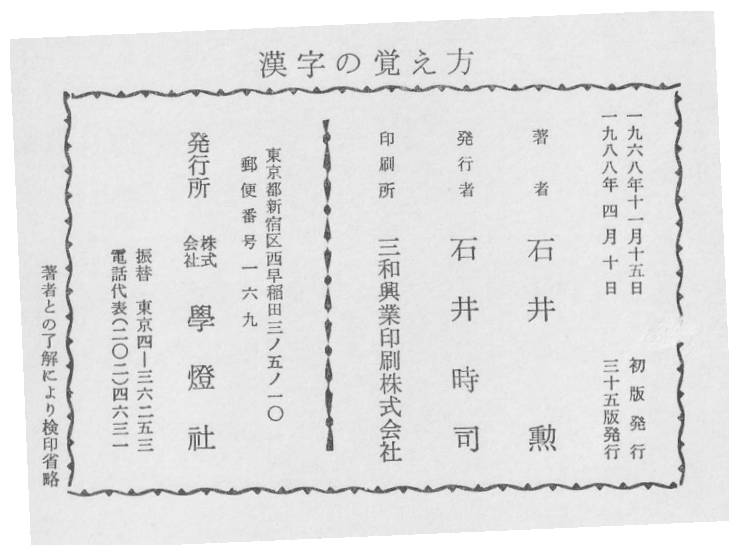 漢字の覚え方
一九六八年十一月十五日 初版発行
一九八八年四月十日 三十五版発行
著者 石井勲
発行者 石井時司
印刷所 三和興業印刷株式会社
東京都新宿区西早稲田三ノ五ノ一〇
郵便番号一六九
発行所 株式会社 學燈社
振替 東京四―三六二五三
電話代表(二〇二)四六三一
著者との了解により検印省略